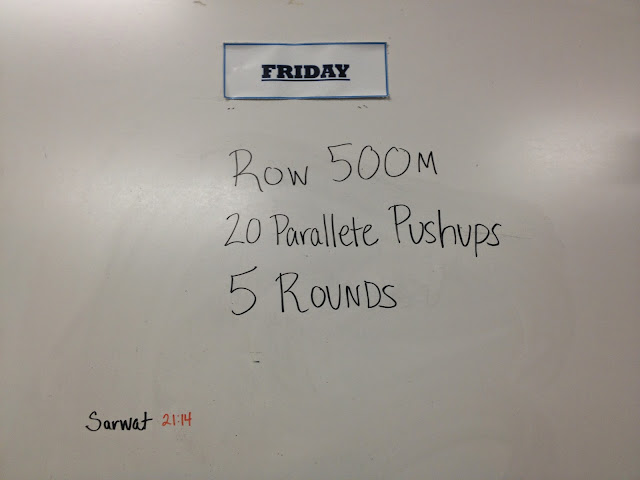 FRIDAY
ROW 500M
20 Parallete Pushups
5 ROUNDS
Sarwat 21:14